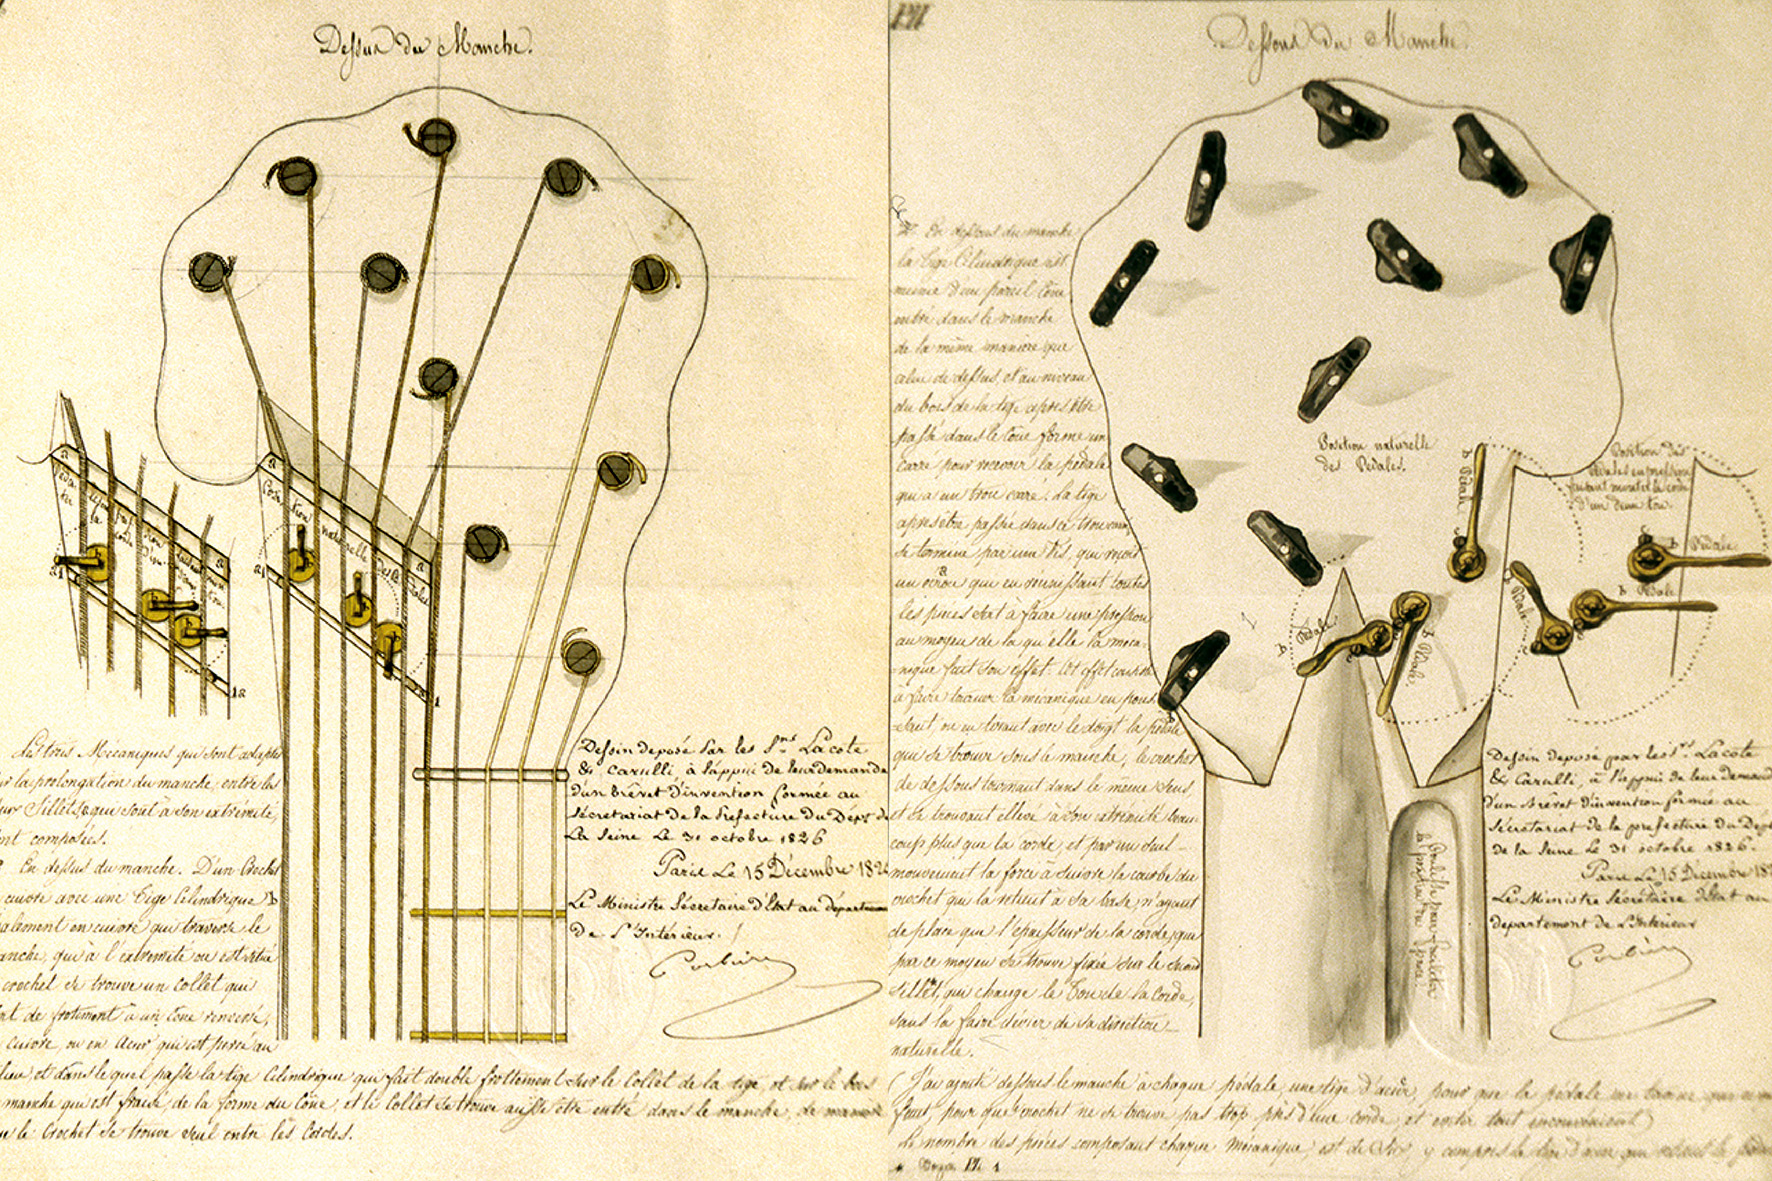 Dessus du Manche.
Les trois Mécaniques qui sont adaptés
sur la prolongation du manche, entre les
Sillets, qui sont à son extrémité,
sont composées.
En dessus du manche. D'un Crochet
cuivre avec une Tige Cilindrique
également en cuivre qui traverse le
manche, qui à l'extremité ou est situé
crochet se trouve un Collet qui
de frotement à un Cône renversé,
cuivre, ou en Acier qui est percé au
milieu, et dans le quel passe la tige Cilindrique qui fait double frottement sur le Collet de la tige, et sur le bois
manche qui est fraisé, de la forme du Cône, et le Collet se trouve aussi être entré dans le manche, de manière
que le Crochet se trouve seul entre les Cordes.
Dessin deposé Par les Srs Lacote
& Carulli, à l'appui de leur demande
d'un Brévet d'invention formée au
Sécretariat de la Prefecture du Dépt de
La Seine Le 31 octobre 1826
Paris Le 15 Décembre 182
Le Ministre Sécretaire d'Etat au département
de l'Intérieur.
Corbière
Dessous du Manche.
En dessous du manche
la tige Cilindrique est
munie d'un pareil Cône
entré dans le manche
de la même maniere que
celui de dessus, et au niveau
du bois de la tige après être
passé dans le Cône forme un
Carré pour recevoir la pédale
qui a un trou carré. La tige
après être passée dans ce trou carré,
se termine par un Vis, qui reçoit
un écrou qui en réunissant toutes
les pieces sert à faire une pression
au moyen de la qu'elle la méca-
nique fait son effet. Cet effet consiste
à faire tourner la mécanique en pous-
sant, ou en tirant avec le doigt la pédale
qui se trouve sous le manche, le crochet
de dessous tournant dans le même Sens,
et se trouvant élevé à son extrémité beau-
coup plus que la corde, et par un seul
mouvement la force à suivre la courbe du
crochet qui la retient à sa base, n'ayant
de place que l'épaisseur de la corde, qui
par ce moyen se trouve fixée sur le second
Sillet, qui change le Ton de la Corde,
sans la faire dévier de sa direction
naturelle.
Position naturelle
des Pédales.
Position des
Pédales en pression
faisant monter la corde
d'un demi ton.
b Pédale
b Pédale
b Pédale.
b Pédale.
Pédale
Dessin deposé par les Srs Lacote
& Carulli, à l'appui de leur demande
d'un Brévet d'invention formée au
Sécretariat de la prefecture du Dépt
de la Seine Le 31 octobre 1826.
Paris Le 15 Décembre 182
Le Ministre Sécretaire d'Etat au
département de l'Intérieur
Corbière
(J'ai ajouté dessous le manche à chaque pédale, une tige d'acier, pour que la pédale ne tourne
faut, pour que le crochet ne se trouve pas trop près d'une corde, et eviter tout inconvénient)
Le nombre des pièces composant chaque Mécanique, est de Six, y compris la tige d'acier qui retient la pédale